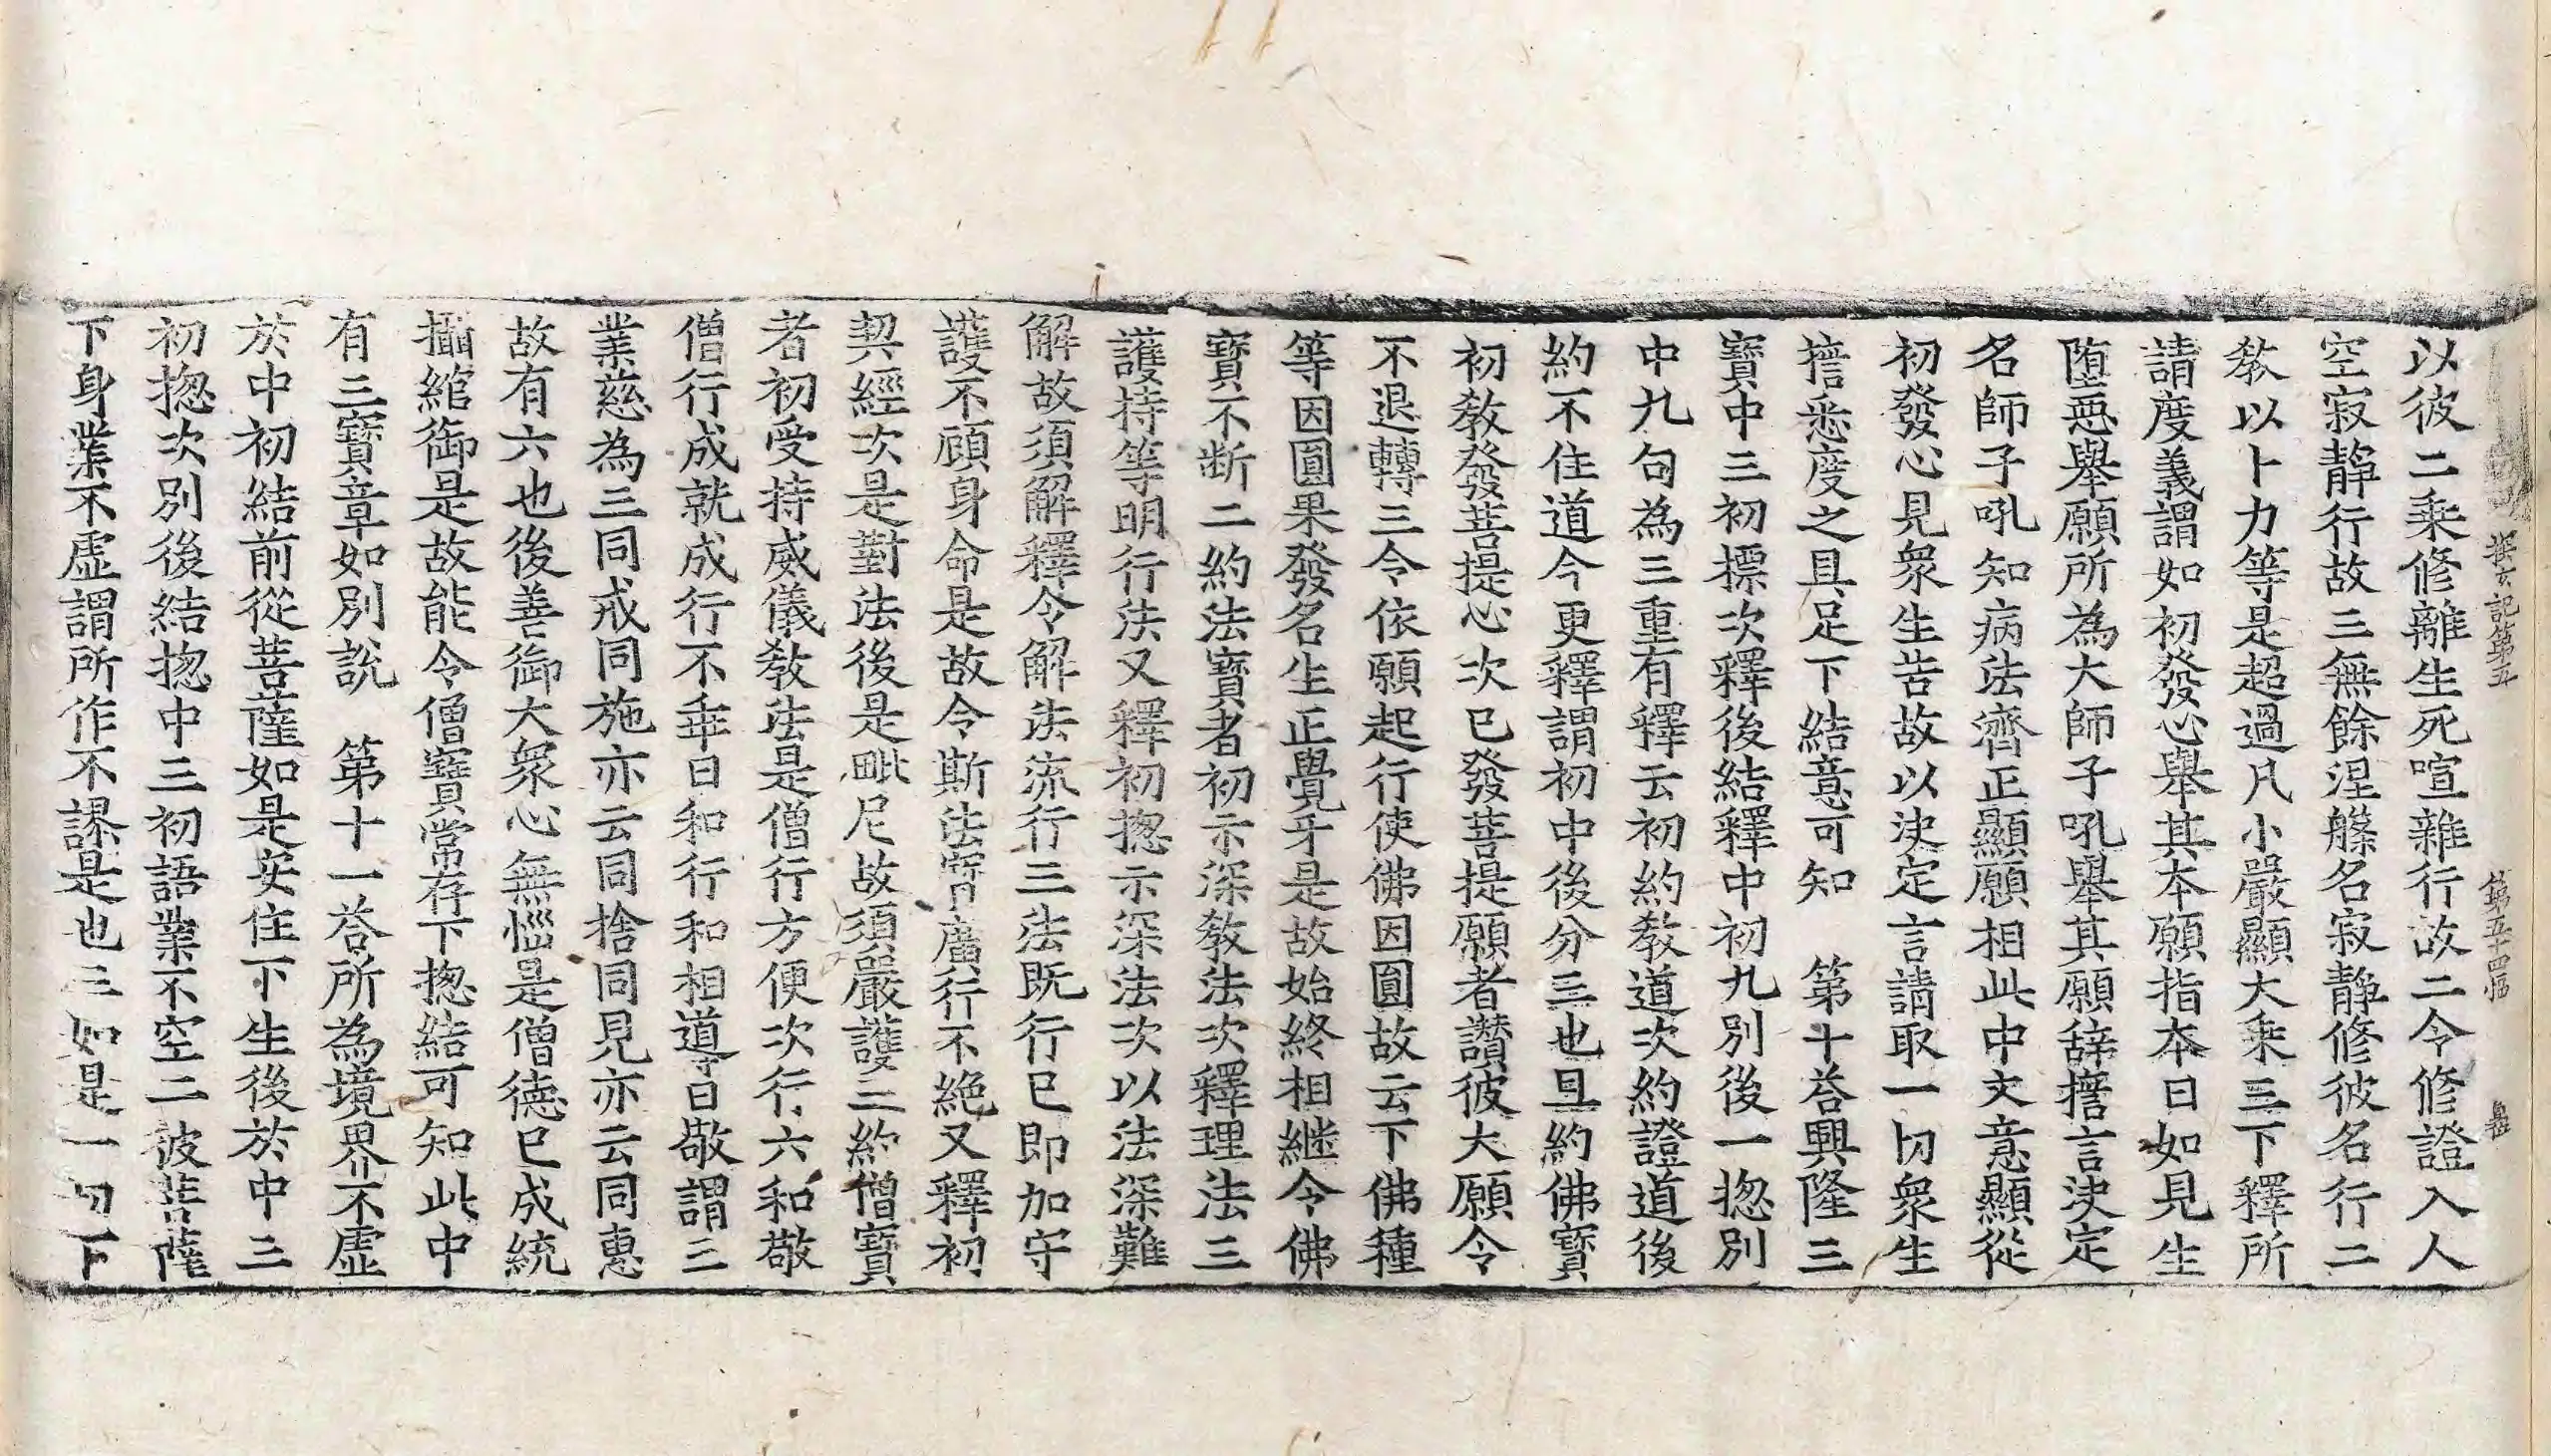 探玄記第五 第五十四張
以彼二乘修離生死喧雜行故二令修證入人
空寂靜行故三無餘涅槃名寂靜修彼名行二
教以卜力等是超過凡小嚴顯大乘三下釋所
請度義謂如初發心舉其本願指本曰如見生
墮惡舉願所為大師子吼舉其願辭擔言决定
名師子吼知病法濟正顯願相此中文意顯從
初發心見衆生苦故以决定言請取一切衆生
擔悉度之具足下結意可知 第十荅興隆三
寶中三初摽次釋後結釋中初九別後一揔別
中九句為三重有釋云初約教道次約證道後
約不住道今更釋謂初中後分三也且約佛寶
初教發菩提心次已發菩提願者讚彼大願令
不退轉三令依願起行使佛因圓故云下佛種
等因圓果發名生正覺牙是故始終相継令佛
寶不断二約法寶者初示深教法次釋理法三
護持等明行法又釋初揔示深法次以法深難
解故須解釋令解法流行三法既行已即加守
護不顧身命是故令斯法寶廣行不絕又釋初
契經次是對法後是毗尼故須嚴護三約僧寶
者初受持威儀教法是僧行方便次行六和敬
僧行成就成行不乖曰和行和相道等曰敬謂三
業慈為三同戒同施亦云同捨同見亦云同惠
故有六也後善御大衆心無惱是僧德已成統
攝綰御是故能令僧寶常存下揔結可知此中
有三寶章如別說 第十一荅所為境界不虛
於中初結前從菩薩如是安住下生後於中三
初揔次別後結揔中三初語業不空二彼菩薩
下身業不虛謂所作不謬是也三如是一切下